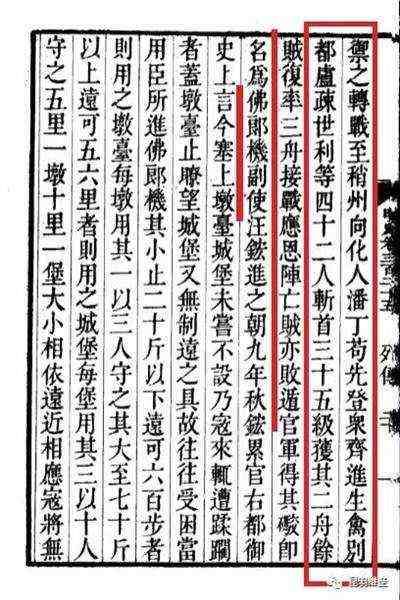 列傳
禦之轉戰至稍州向化人潘丁苟先登衆齊進生擒別
都盧疎世利等四十二人斬首三十五級獲其二舟餘
賊復率三舟接戰應恩陣亡賊亦敗遁官軍得其礮卽
名爲佛郎機副使汪鋐進之朝九年秋鋐累官右都御
史上言今塞上墩臺城堡未嘗不設乃寇來輒遭蹂躪
者蓋墩臺止瞭望城堡又無制遠之具故往往受困當
用臣所進佛郎機其小止二十斤以下遠可六百步者
則用之墩臺每墩用其一以三人守之其大至七十斤
以上遠可五六里者則用之城堡每堡用其三以十人
守之五里一墩十里一堡大小相依遠近相應寇將無